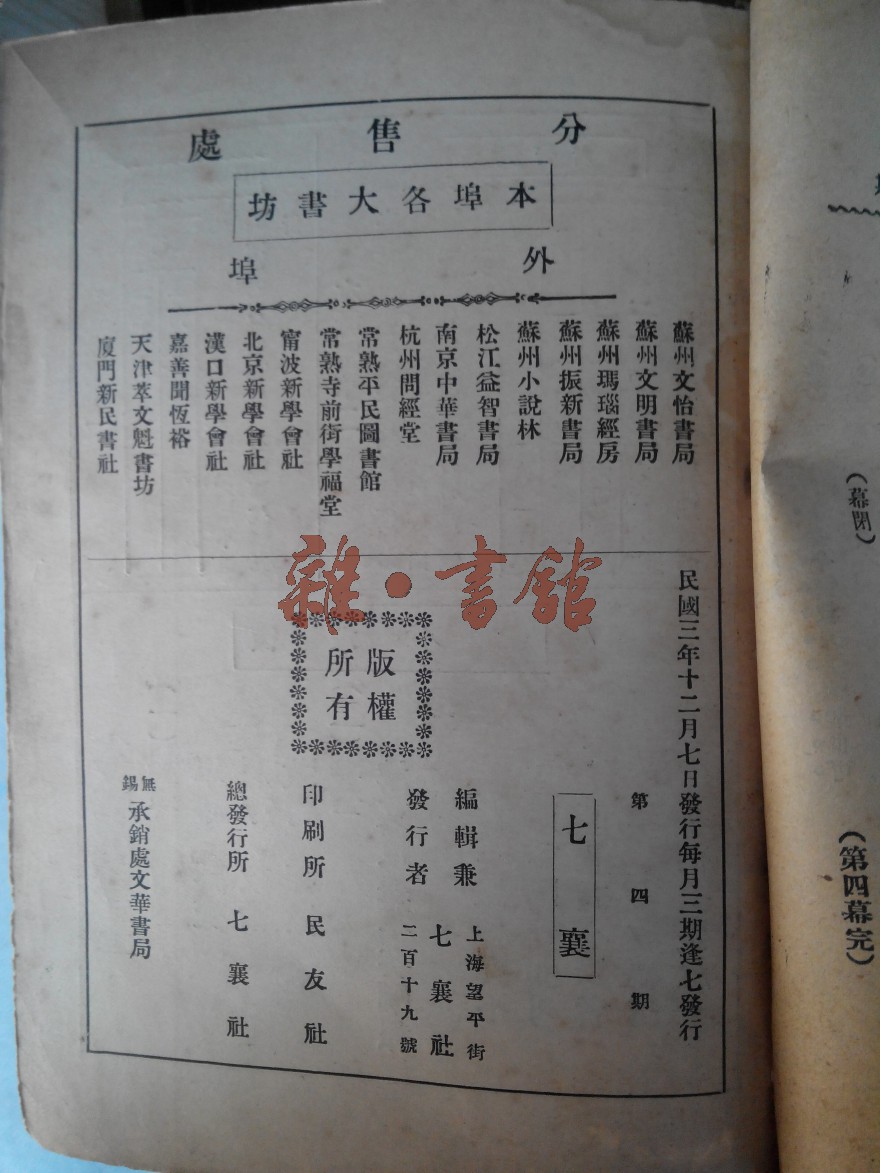 分售處
本埠各大書坊
外埠
蘇州文怡書局
蘇州文明書局
蘇州瑪瑙經房
蘇州振新書局
蘇州小說林
松江益智書局
南京中華書局
杭州問經堂
常熟平民圖書館
常熟寺前街學福堂
甯波新學會社
北京新學會社
漢口新學會社
嘉善聞恆裕
天津萃文魁書坊
廈門新民書社
雜·書館
民國三年十二月七日發行每月三期逢七發行
第四期
七襄
版權
所有
編輯兼
發行者
上海望平街
七襄社
二百十九號
印刷所 民友社
總發行所 七襄社
無錫
承銷處文華書局
(幕閉)
(第四幕完)